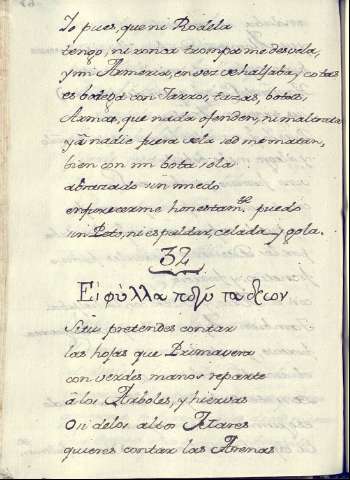 Yo pues, que ni Rodela
tengo, ni ronca trompa me desvela,
y mi Armeria, en vez de half aba, cotas
es bodega con Jarros, tazas, botas,
Armas, que nada ofenden, ni maltratan
y â nadie fuera de la sed me matan,
bien con mi bota sola
abrazado sin miedo
enfurecerme honestam.te puedo
sin Peto, ni espaldar, celada, y gola.
32
Εἰ φύλλα πάντα δένδρων
Si tu pretendes contar
las hojas que Primavera
con verdes manos reparte
â los Arboles, y hiervas
O si de los altos Mares
quieres contar las Arenas